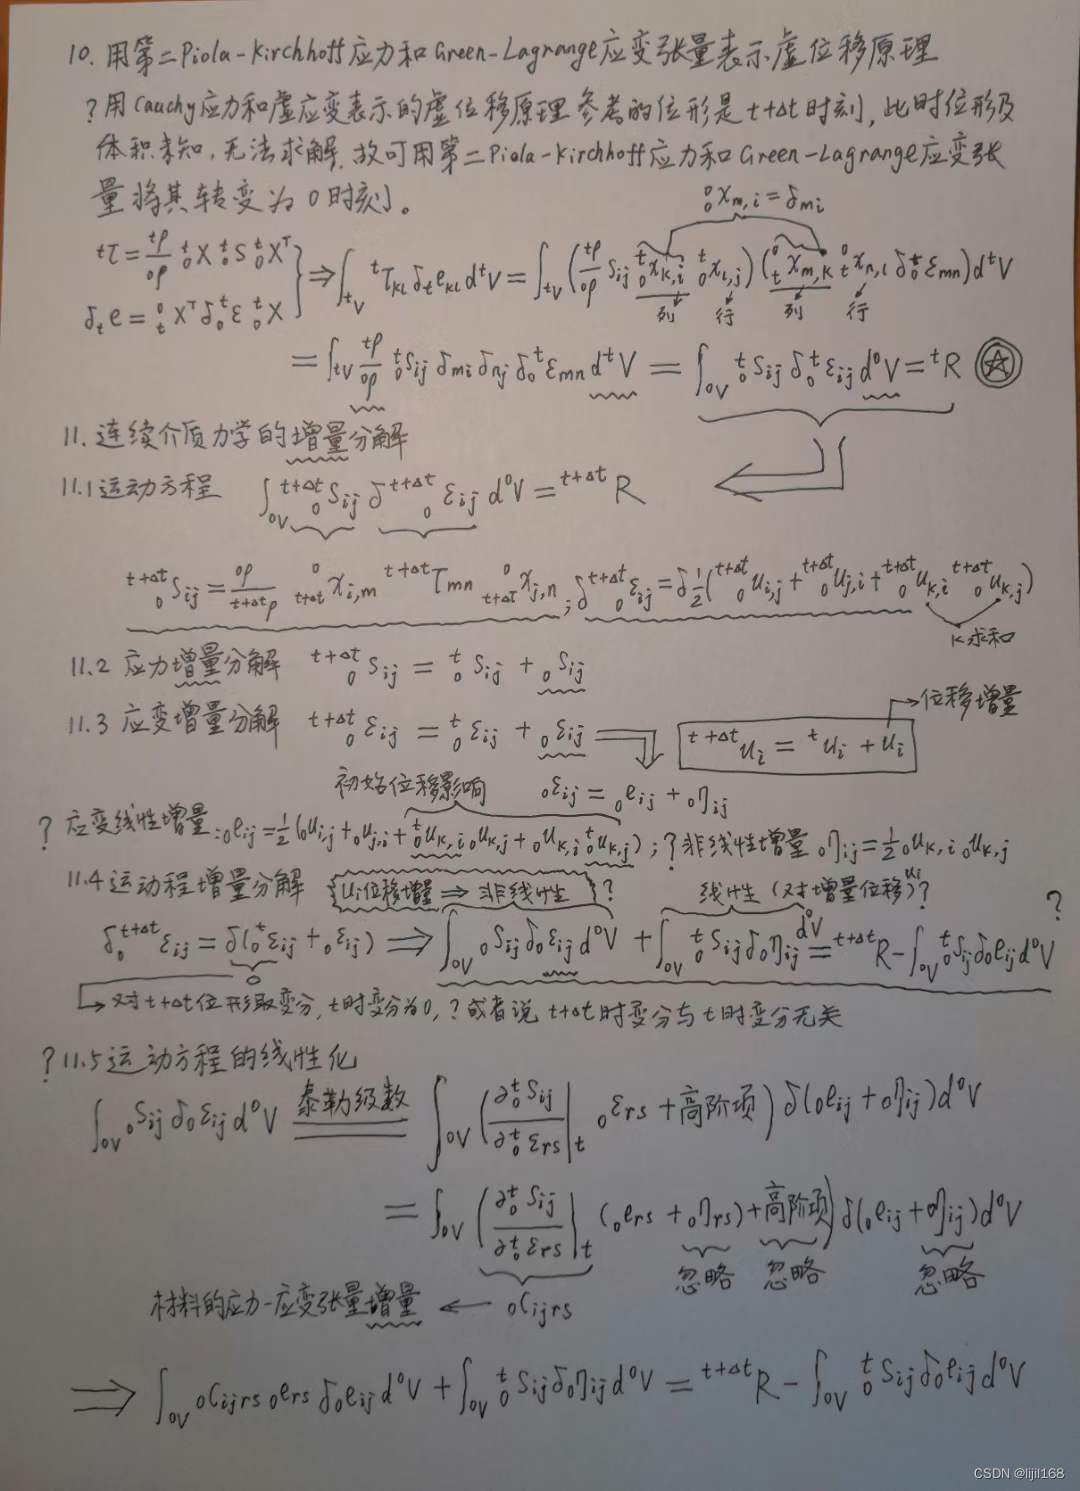 10. 用第二Piola-Kirchhoff应力和Green-Lagrange应变张量表示虚位移原理
?用Cauchy应力和虚应变表示的虚位移原理参考的位形是t+Δt时刻,此时位形及
体积未知,无法求解.故可用第二Piola-Kirchhoff应力和Green-Lagrange应变张
量将其转变为0时刻。
⁰₀x_{m,i} = δ_{mi}
ᵗτ = ᵗρ/⁰ρ ᵗ₀X ᵗ₀S ᵗ₀Xᵀ
δ_t e = ⁰_tXᵀ δᵗ₀ε ⁰_tX
⇒ ∫_{tV} ᵗτ_{kl} δ_t e_{kl} dᵗV = ∫_{tV} (ᵗρ/⁰ρ S_{ij} ᵗ₀x_{k,i} ᵗ₀x_{l,j}) (⁰_t x_{m,k} ⁰_t x_{n,l} δᵗ₀ε_{mn}) dᵗV
列 行 列 行
= ∫_{tV} ᵗρ/⁰ρ ᵗ₀S_{ij} δ_{mi} δ_{nj} δᵗ₀ε_{mn} dᵗV = ∫_{0V} ᵗ₀S_{ij} δᵗ₀ε_{ij} d⁰V = ᵗR ☆
11. 连续介质力学的增量分解
11.1 运动方程 ∫_{0V} ᵗ⁺ᐃᵗ₀S_{ij} δᵗ⁺ᐃᵗ₀ε_{ij} d⁰V = ᵗ⁺ᐃᵗR
ᵗ⁺ᐃᵗ₀S_{ij} = ⁰ρ/ᵗ⁺ᐃᵗρ ⁰_{t+Δt}x_{i,m} ᵗ⁺ᐃᵗτ_{mn} ⁰_{t+Δt}x_{j,n} ; δᵗ⁺ᐃᵗ₀ε_{ij} = δ½(ᵗ⁺ᐃᵗ₀u_{i,j} + ᵗ⁺ᐃᵗ₀u_{j,i} + ᵗ⁺ᐃᵗ₀u_{k,i} ᵗ⁺ᐃᵗ₀u_{k,j})
K求和
11.2 应力增量分解 ᵗ⁺ᐃᵗ₀S_{ij} = ᵗ₀S_{ij} + ₀S_{ij}
11.3 应变增量分解 ᵗ⁺ᐃᵗ₀ε_{ij} = ᵗ₀ε_{ij} + ₀ε_{ij} ᵗ⁺ᐃᵗu_i = ᵗu_i + u_i → 位移增量
初始位移影响 ₀ε_{ij} = ₀e_{ij} + ₀η_{ij}
? 应变线性增量: ₀e_{ij} = ½(₀u_{i,j} + ₀u_{j,i} + ᵗ₀u_{k,i} ₀u_{k,j} + ₀u_{k,i} ᵗ₀u_{k,j}) ; ?非线性增量 ₀η_{ij} = ½ ₀u_{k,i} ₀u_{k,j}
11.4 运动程增量分解 u_i位移增量 ⇒ 非线性 ? 线性(对增量位移u_i)? ?
δᵗ⁺ᐃᵗ₀ε_{ij} = δ(ᵗ₀ε_{ij} + ₀ε_{ij}) ⇒ ∫_{0V} ₀S_{ij} δ₀ε_{ij} d⁰V + ∫_{0V} ᵗ₀S_{ij} δ₀η_{ij} d⁰V = ᵗ⁺ᐃᵗR - ∫_{0V} ᵗ₀S_{ij} δ₀e_{ij} d⁰V
0
→ 对t+Δt位形取变分,t时变分为0,?或者说 t+Δt时变分与t时变分无关
? 11.5 运动方程的线性化
∫_{0V} ₀S_{ij} δ₀ε_{ij} d⁰V =泰勒级数= ∫_{0V} (∂ᵗ₀S_{ij}/∂ᵗ₀ε_{rs}|_t ₀ε_{rs} + 高阶项) δ(₀e_{ij} + ₀η_{ij}) d⁰V
= ∫_{0V} (∂ᵗ₀S_{ij}/∂ᵗ₀ε_{rs}|_t (₀e_{rs} + ₀η_{rs}) + 高阶项) δ(₀e_{ij} + ₀η_{ij}) d⁰V
忽略 忽略 忽略
材料的应力-应变张量增量 ← ₀C_{ijrs}
⇒ ∫_{0V} ₀C_{ijrs} ₀e_{rs} δ₀e_{ij} d⁰V + ∫_{0V} ᵗ₀S_{ij} δ₀η_{ij} d⁰V = ᵗ⁺ᐃᵗR - ∫_{0V} ᵗ₀S_{ij} δ₀e_{ij} d⁰V
CSDN @lijil168